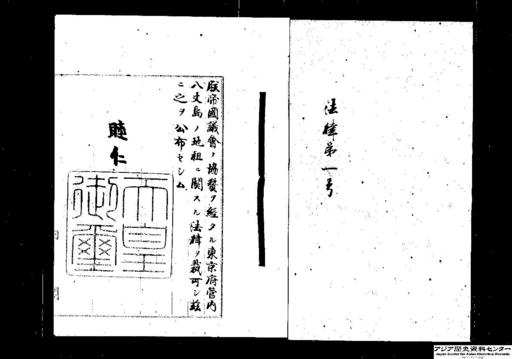 法律第一号
朕帝國議會ノ協賛ヲ經タル東京府管内
八丈島ノ地租ニ關スル法律ヲ裁可シ茲
ニ之ヲ公布セシム
睦仁
天皇
御璽
アジア歴史資料センター
Japan Center for Asian Historical Records